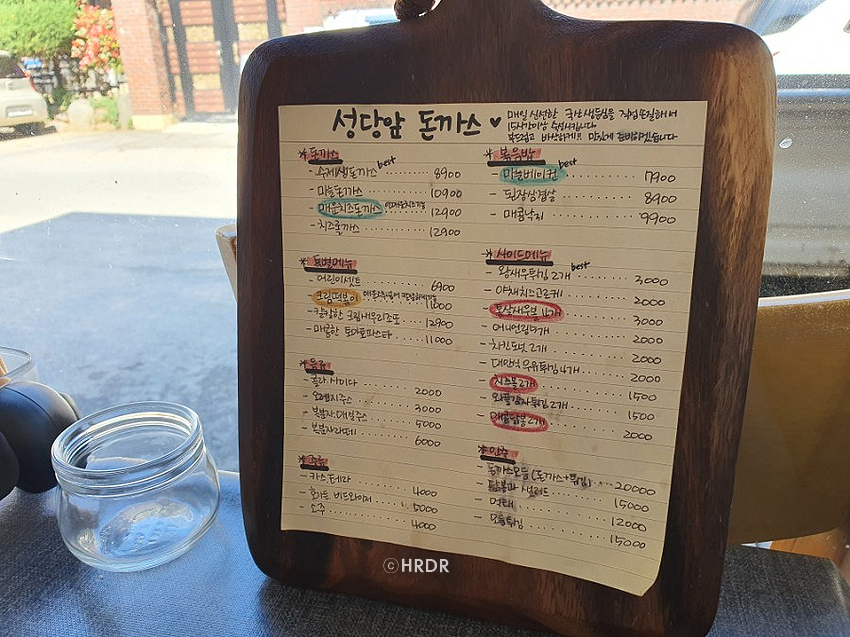 성당앞 돈까스 ♥
매일 신선한 국산 생등심을 직접 손질하여
15시간이상 숙성시킵니다
부드럽고 바삭하게요 맛있게 준비하겠습니다
* 돈까스
- 수제생돈까스 best 8900
- 마늘돈까스 10900
- 매운치즈돈까스 12900
- 치즈롤까스 12900
* 특별메뉴
- 어린이세트 6900
- 크림떡볶이
- 매콤한 토마토파스타 11000
* 음료
- 콜라 사이다 2000
- 오렌지주스 3000
- 복분자 5000
- 복분자라떼 6000
* 주류
- 카스 테라 4000
- 버드와이저 5000
- 소주 4000
* 볶음밥
- 마늘베이컨 best 7900
- 된장삼겹살 8900
- 매콤낙지 9900
* 사이드메뉴
- 왕새우튀김 2개 best 3000
- 야채치즈고로케 2000
- 통살새우볼 4개 3000
- 어니언링 2000
- 치킨도넛 2개 2000
- 대만식 우유튀김 4개 2000
- 치즈볼 2개 1500
- 와플감자튀김 2개 1500
- 매콤닭볼 2개 2000
* 안주
- 돈까스모둠 (돈까스+튀김) 20000
- 샐러드 15000
- 먹태 12000
- 모둠튀김 15000
ⓒHRDR